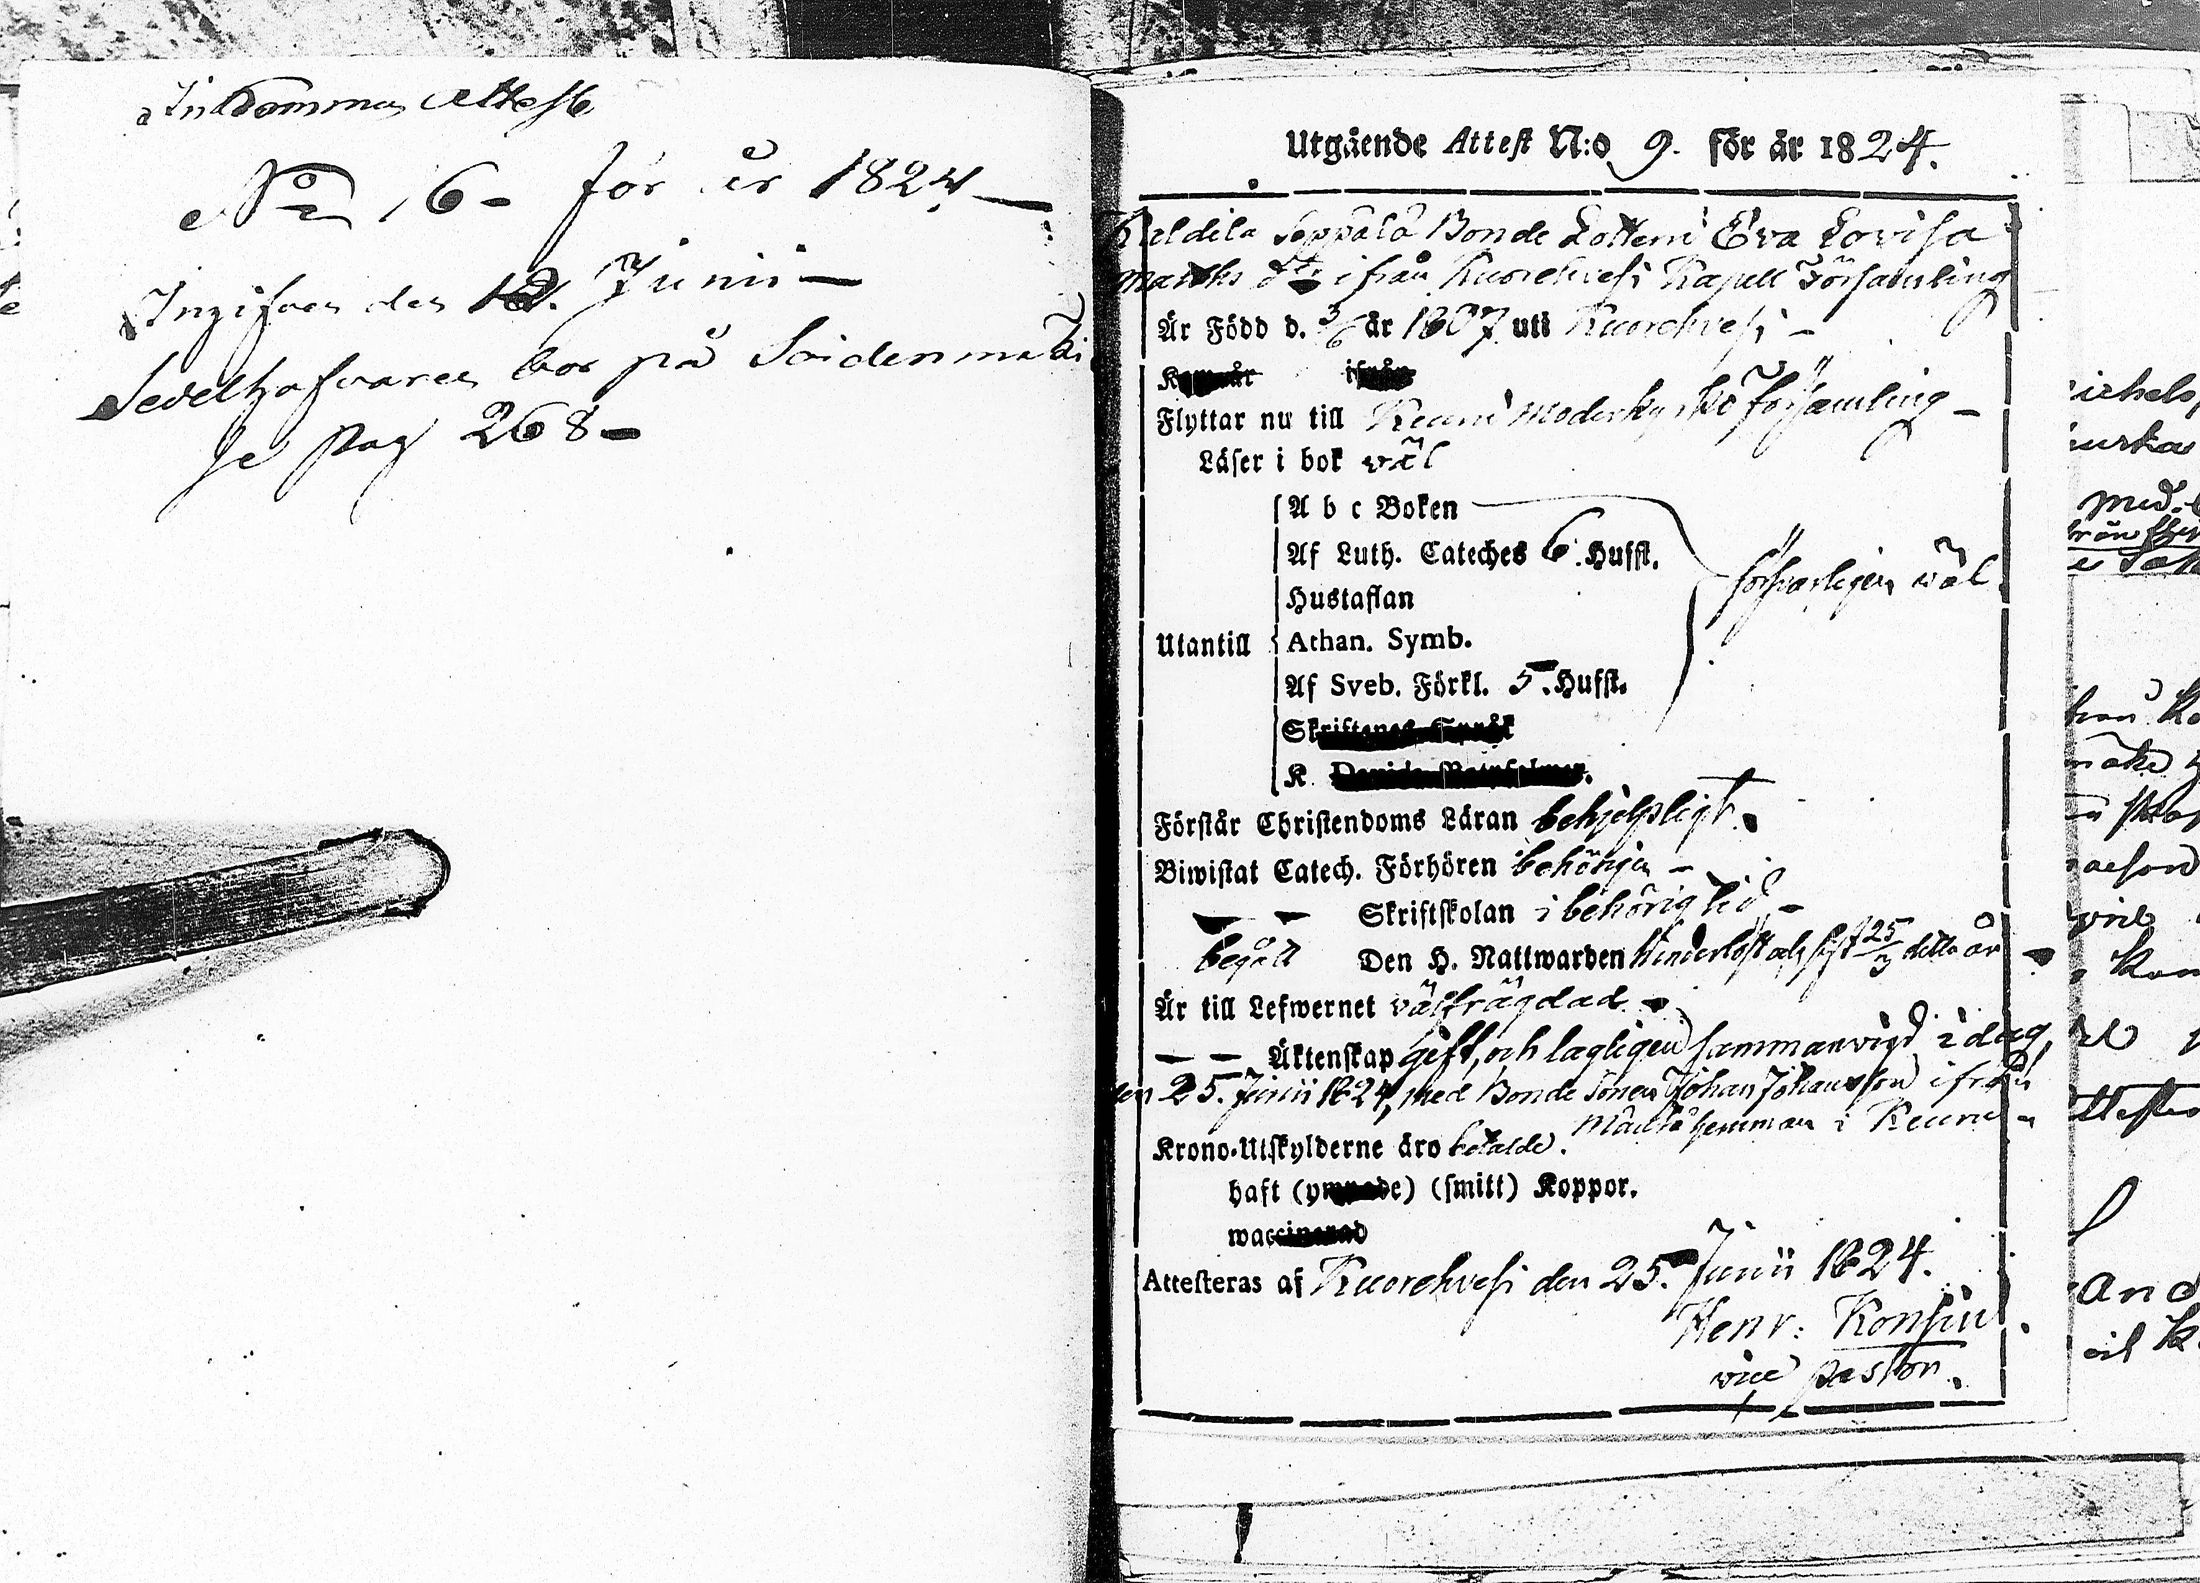 Inkommen Attest
N:o 16 - för år 1824 -
Ingifven den Junii -
Sedelhafvaren bor på Soidenmäki
se pag 268 -
Utgående Attest N:o 9. för år 1824.
Seppälä Bonde Dottern Eva Lovisa
Matths dr ifrån Kuorehvesi Kapell Församling
Är Född d. 3/6 år 1807 uti Kuorehvesi -
Flyttar nu till Keuru Moderkyrko församling -
Läser i bok väl
A b c Boken
Af Luth. Cateches 6. Hufst.
försvarligen väl.
Hustaflan
Utantill Athan. Symb.
Af Sveb. Förkl. 5. Hufst.
Skriftenes Språk
K. Davids Botpsalmer.
Förstår Christendoms Läran behjelpligt.
Biwistat Catech. Förhören behörigen -
— — Skriftskolan i behörig tid -
begått Den H. Nattwarden sist 25/3 detta år
Är till Lefwernet välfrägdad -
— — Äktenskap gift, och lagligen sammanvigd i dag,
den 25. Junii 1824, med Bonde Sonen Johan Johansson ifrån
hemman i Keuru -
Krono-Utskylderne äro betalde.
haft (ympade) (smitt) Koppor.
waccinerad
Attesteras af Kuorehvesi den 25. Junii 1824.
Henr: Konsin
vice pastor.